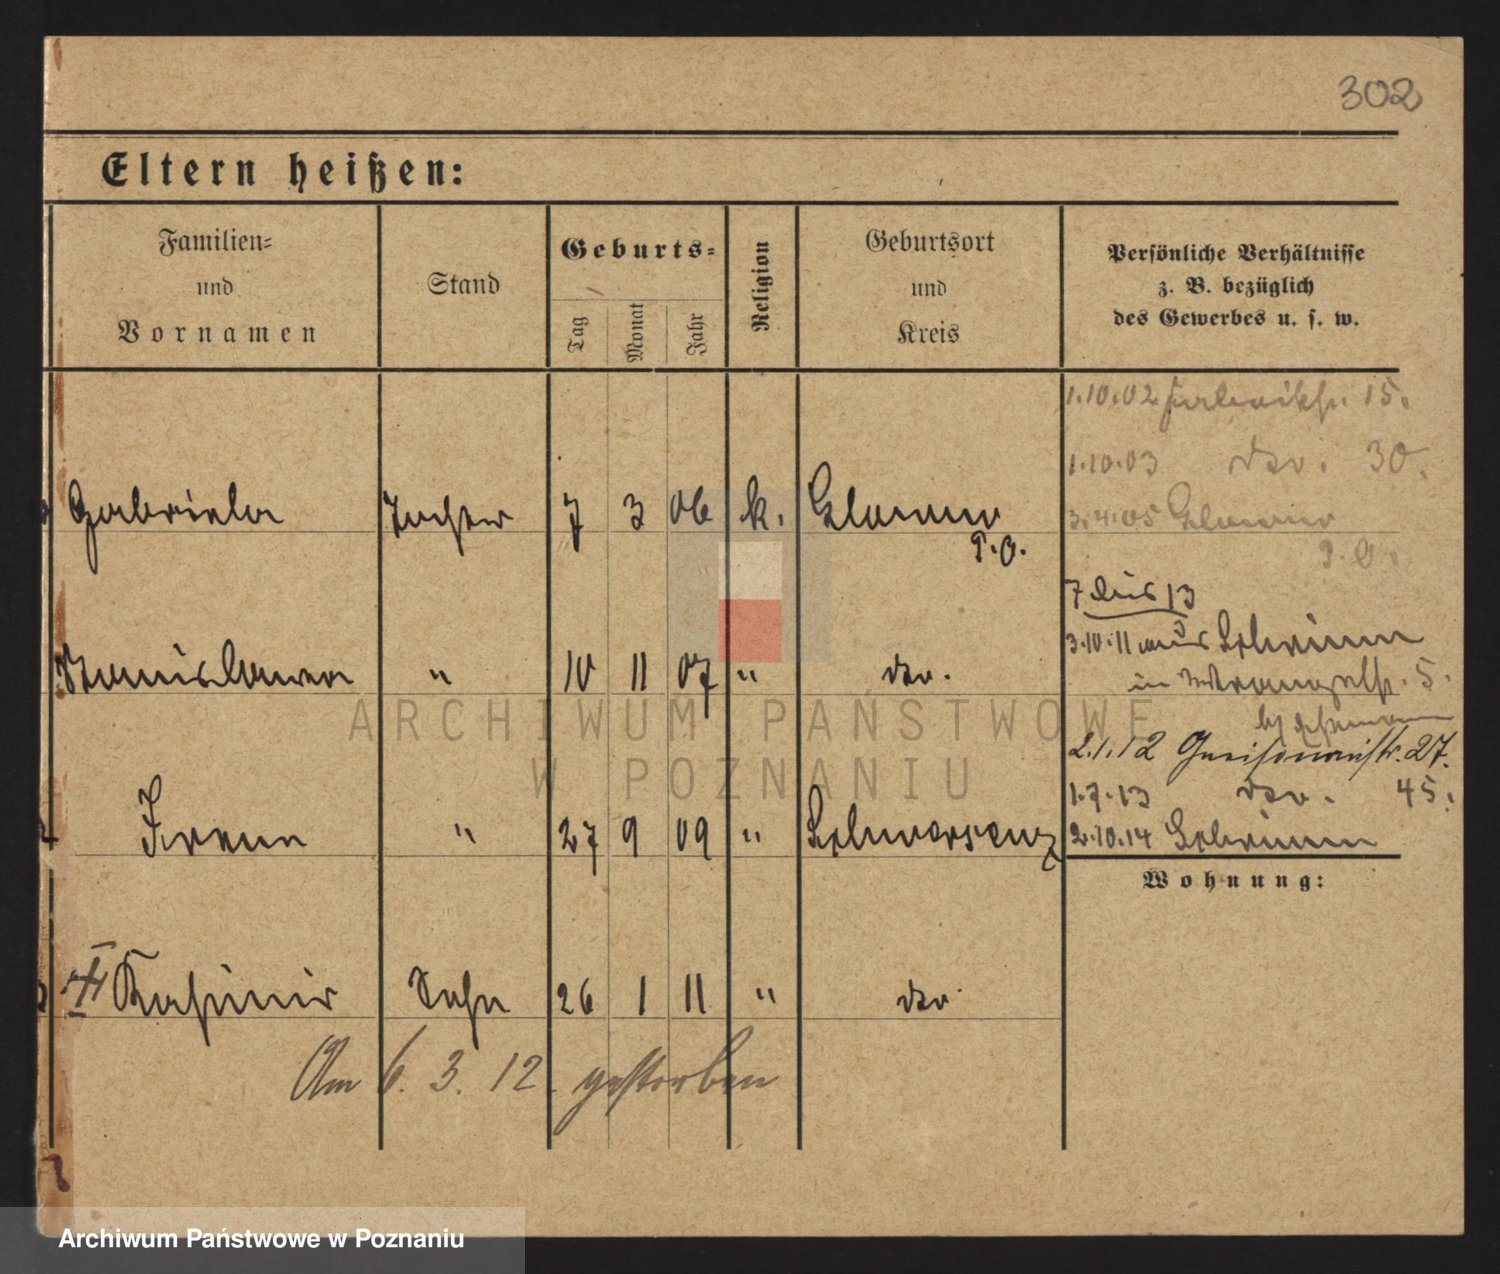 302
Eltern heißen:
Familien=
und
Vornamen
Stand
Geburts=
Tag
Monat
Jahr
Religion
Geburtsort
und
Kreis
Persönliche Verhältnisse
z. B. bezüglich
des Gewerbes u. s. w.
1.10.02 15.
1.10.03 do. 30.
Gabriela Tochter 7 3 06 k. Glowno
P.O.
3.4.05 Glowno
P.O.
7 13
3.10.11 aus Schrimm
Stanislawa " 10 11 07 " do.
in Wrangelstr. 5.
2.1.12 Gneisenaustr. 27.
1.7.13 do. 45.
Irene " 27 9 09 " Schwersenz
2.10.14 Schrimm
Wohnung:
Kasimir Sohn 26 1 11 " do
Am 6. 3. 12. gestorben
ARCHIWUM PAŃSTWOWE
W POZNANIU
Archiwum Państwowe w Poznaniu